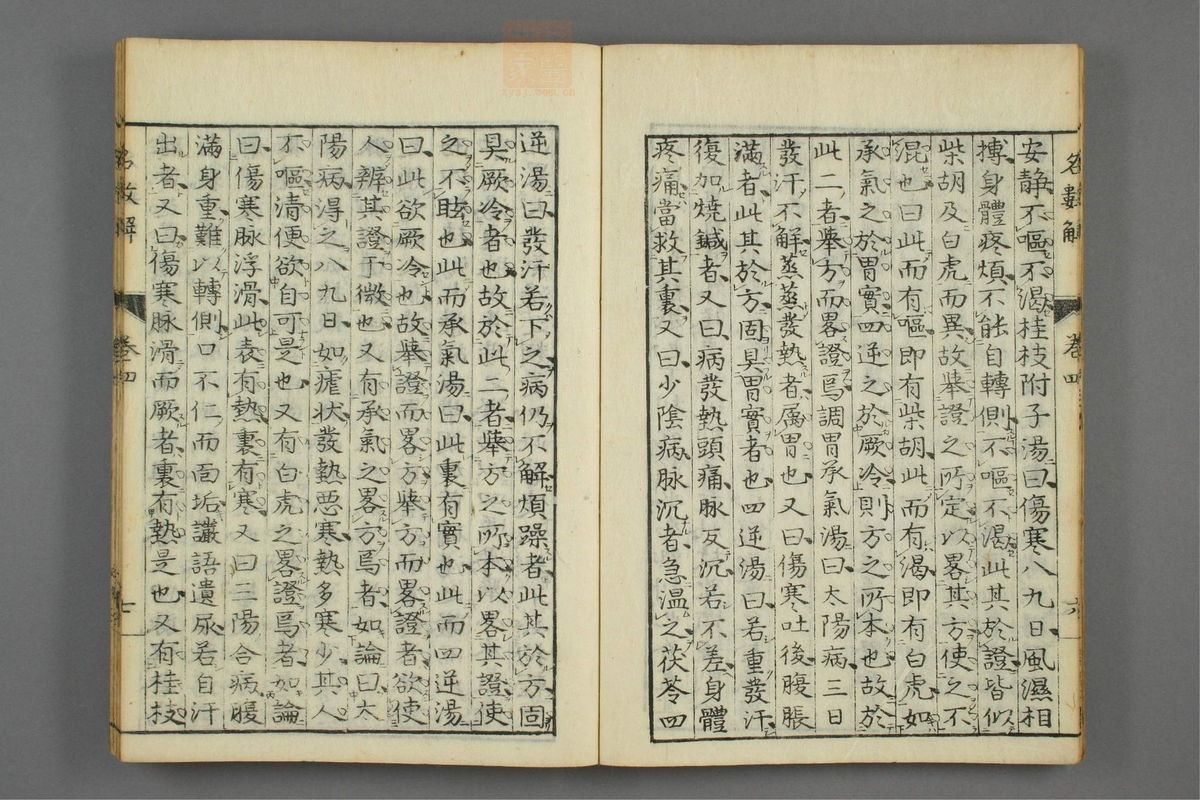 名數解 卷四 六
安静不嘔不渇桂枝附子湯曰傷寒八九日風濕相
搏身體疼煩不能自轉側不嘔不渇此其於證皆似
柴胡及白虎而異故舉證之所定以畧其方使之不
混也曰此而有嘔即有柴胡此而有渇即有白虎如
承氣之於胃實四逆之於厥冷則方之所本也故於
此二者舉方而畧證焉調胃承氣湯曰太陽病三日
發汗不解蒸蒸發熱者屬胃也又曰傷寒吐後腹脹
滿者此其於方固具胃實者也四逆湯曰若重發汗
復加燒鍼者又曰病發熱頭痛脉反沉若不差身體
疼痛當救其裏又曰少陰病脉沉者急温之茯苓四
逆湯曰發汗若下之病仍不解煩躁者此其於方固
具厥冷者也故於此二者舉方之所本以畧其證使
之不眩也此而承氣湯曰此裏有實也此而四逆湯
曰此欲厥冷也故舉證而畧方舉方而畧證者欲使
人辨其證于微也又有承氣之畧方焉者如論曰太
陽病得之八九日如瘧状發熱惡寒熱多寒少其人
不嘔清便欲自可是也又有白虎之畧證焉者如論
曰傷寒脉浮滑此表有熱裏有寒又曰三陽合病腹
滿身重難以轉側口不仁而面垢讝語遺尿若自汗
出者又曰傷寒脉滑而厥者裏有熱是也又有桂枝
名數解 卷四 七